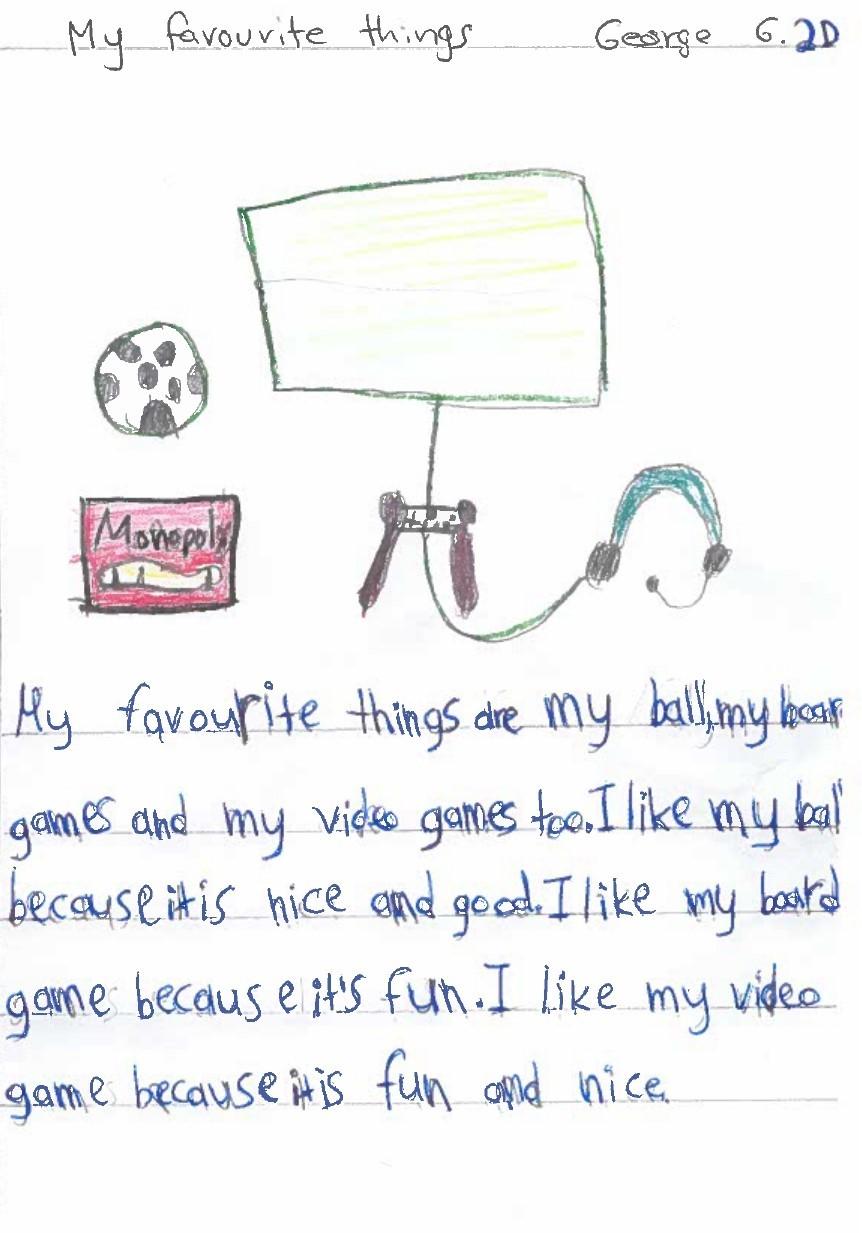 My favourite things George G. 2D
Monopoly
My favourite things are my ball, my boar
games and my video games too. I like my ball
because it is nice and good. I like my board
game because it's fun. I like my video
game because it is fun and nice.